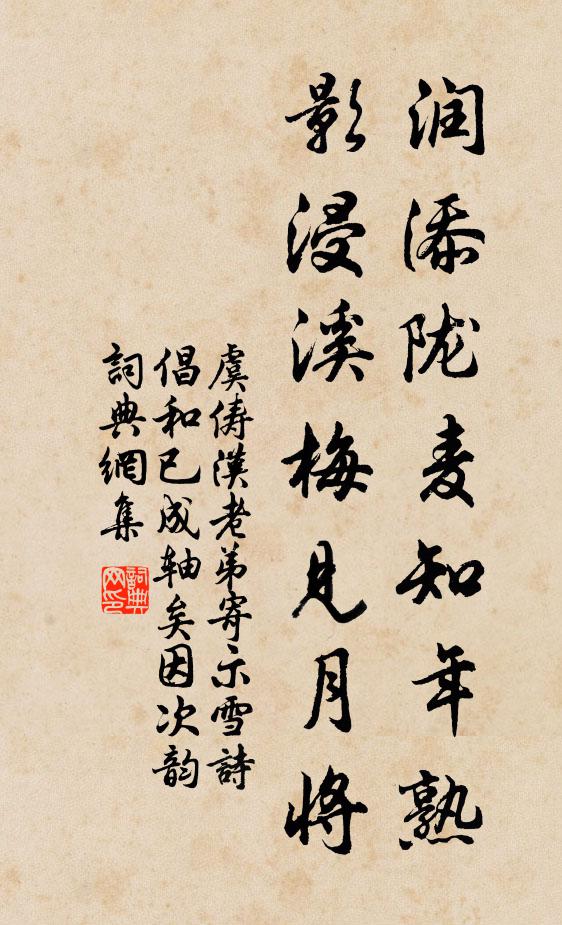 润添陇麦知年熟
影浸溪梅见月将
虞俦汉老弟寄示雪詩
倡和已成轴矣因次韵
詞典網集
詞典网印